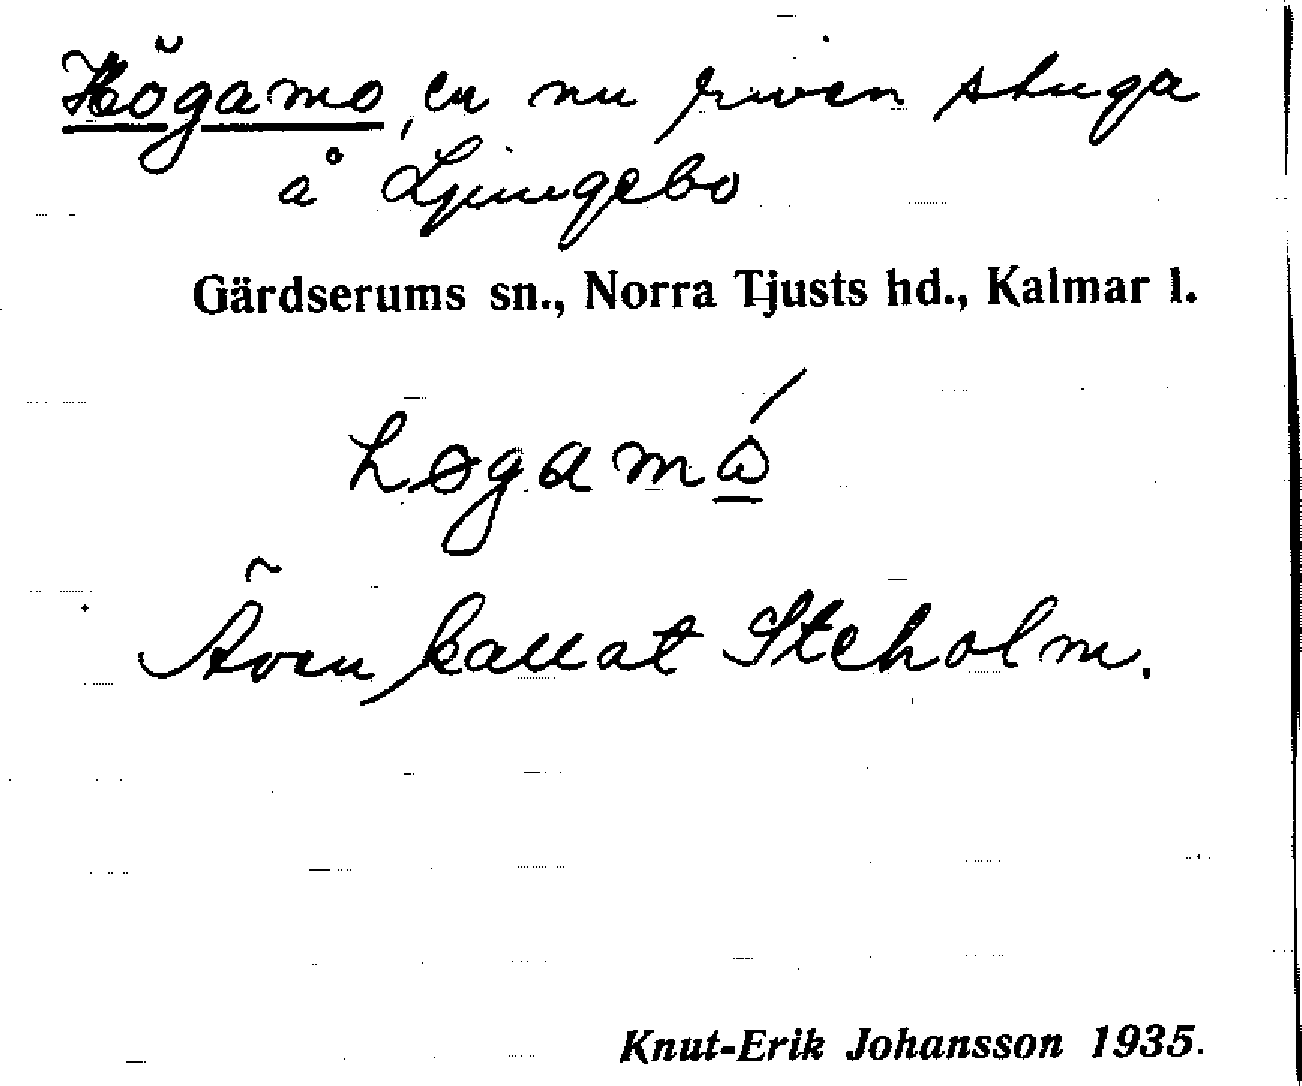 Högamo, en nu riven stuga
å Ljungebo
Gärdserums sn., Norra Tjusts hd., Kalmar l.
høgamó̲
Även kallat Steholm.
Knut-Erik Johansson 1935.